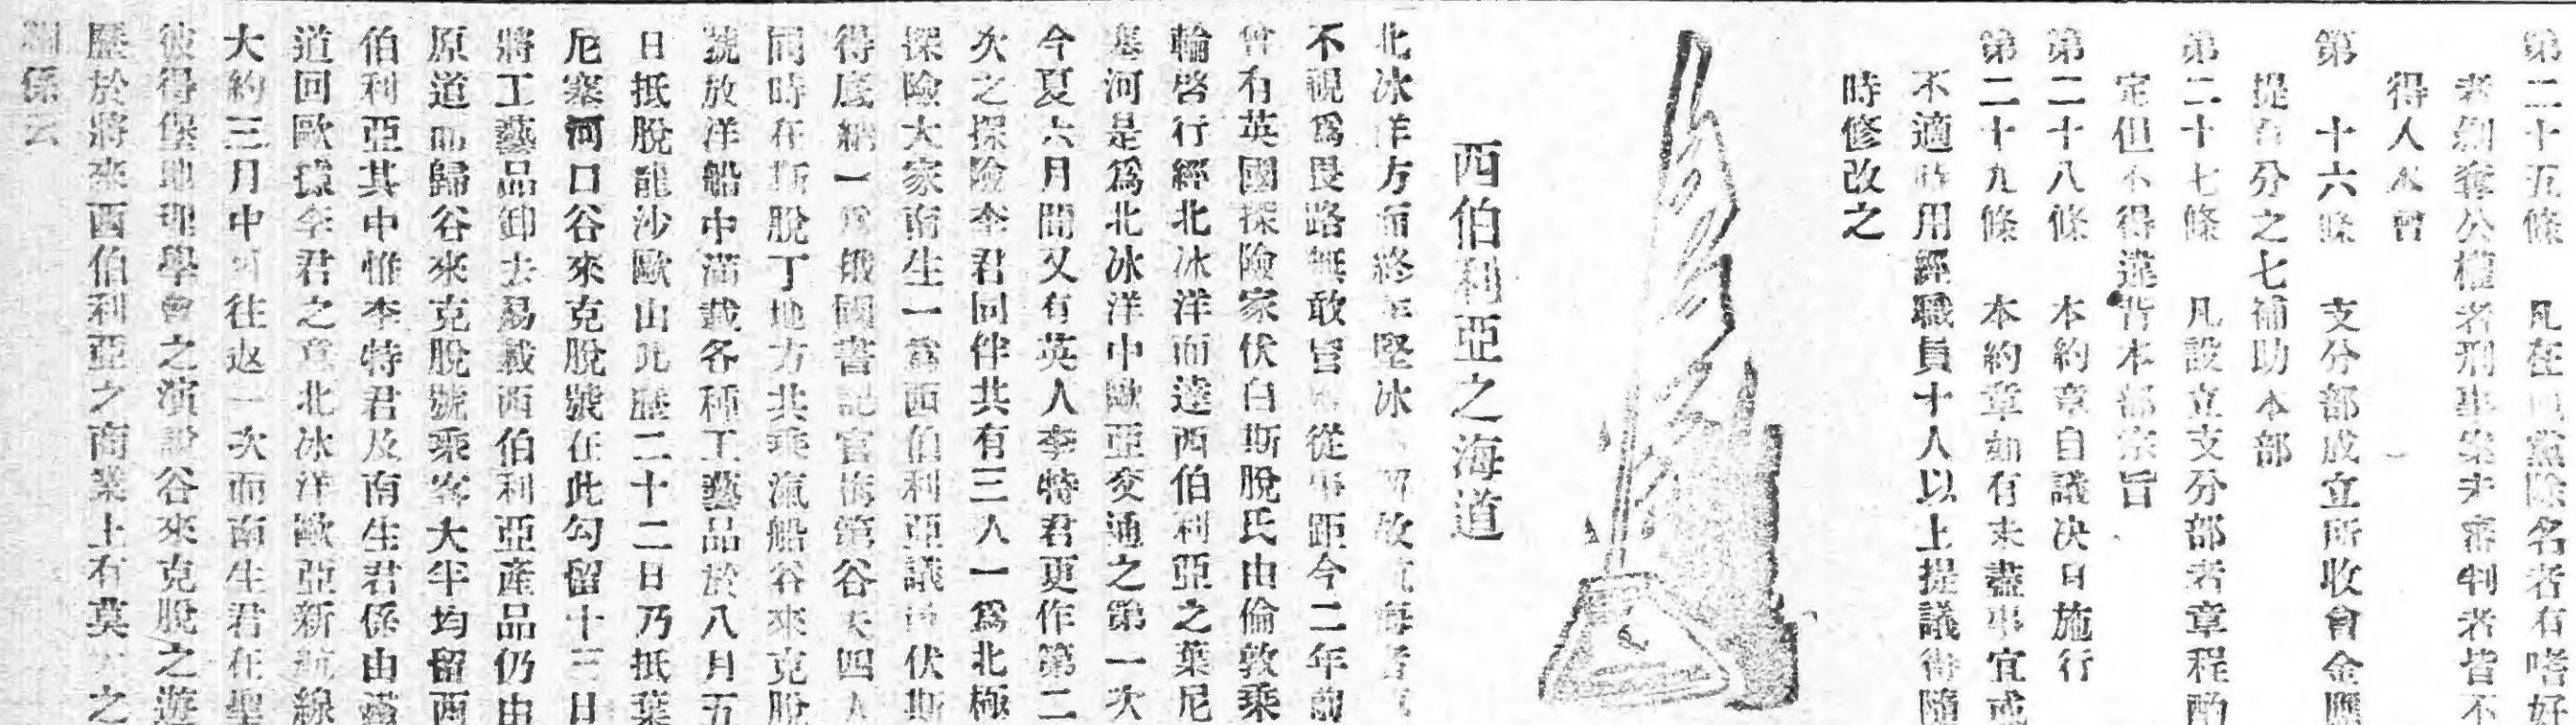 第二十五條　凡在黨除名者有嗜好
者剝奪公權者刑事案未審判者皆不
得入本會
第二十六條　支分部成立所收會金應
提百分之七補助本部
第二十七條　凡設立支分部者章程酌
定但不得違背本部宗旨
第二十八條　本約章自議决日施行
第二十九條　本約章如有未盡事宜或
不適時用經職員十人以上提議得隨
時修改之
西伯利亞之海道
北冰洋方面終年堅冰故航海者
不視爲畏路無敢冒從事距今二年前
曾有英國探險家伏白斯脫氏由倫敦乘
輪啓行經北冰洋而達西伯利亞之葉尼
塞河是爲北冰洋中歐亞交通之第一次
今夏六月間又有英人李特君更作第二
次之探險李君同伴共有三人一爲北極
探險大家南生一爲西伯利亞議員伏斯
得底納一爲俄國書記官四人
同時在斯脫丁地方共乘汽船谷來克脫
號放洋船中滿載各種工藝品於八月五
日抵脫龍沙歐山凡歷二十二日乃抵葉
尼塞河口谷來克脫號在此勾留十三日
將工藝品卸去易載西伯利亞產品仍由
原道而歸谷來克脫號乘客大半均留西
伯利亞其中惟李特君及南生君係由
道回歐據李君之意北冰洋歐亞新航線
大約三月中可往返一次而南生君在聖
彼得堡地理學會之演說谷來克脫之遊
歷於將來西伯利亞之商業上有莫大之
關係云